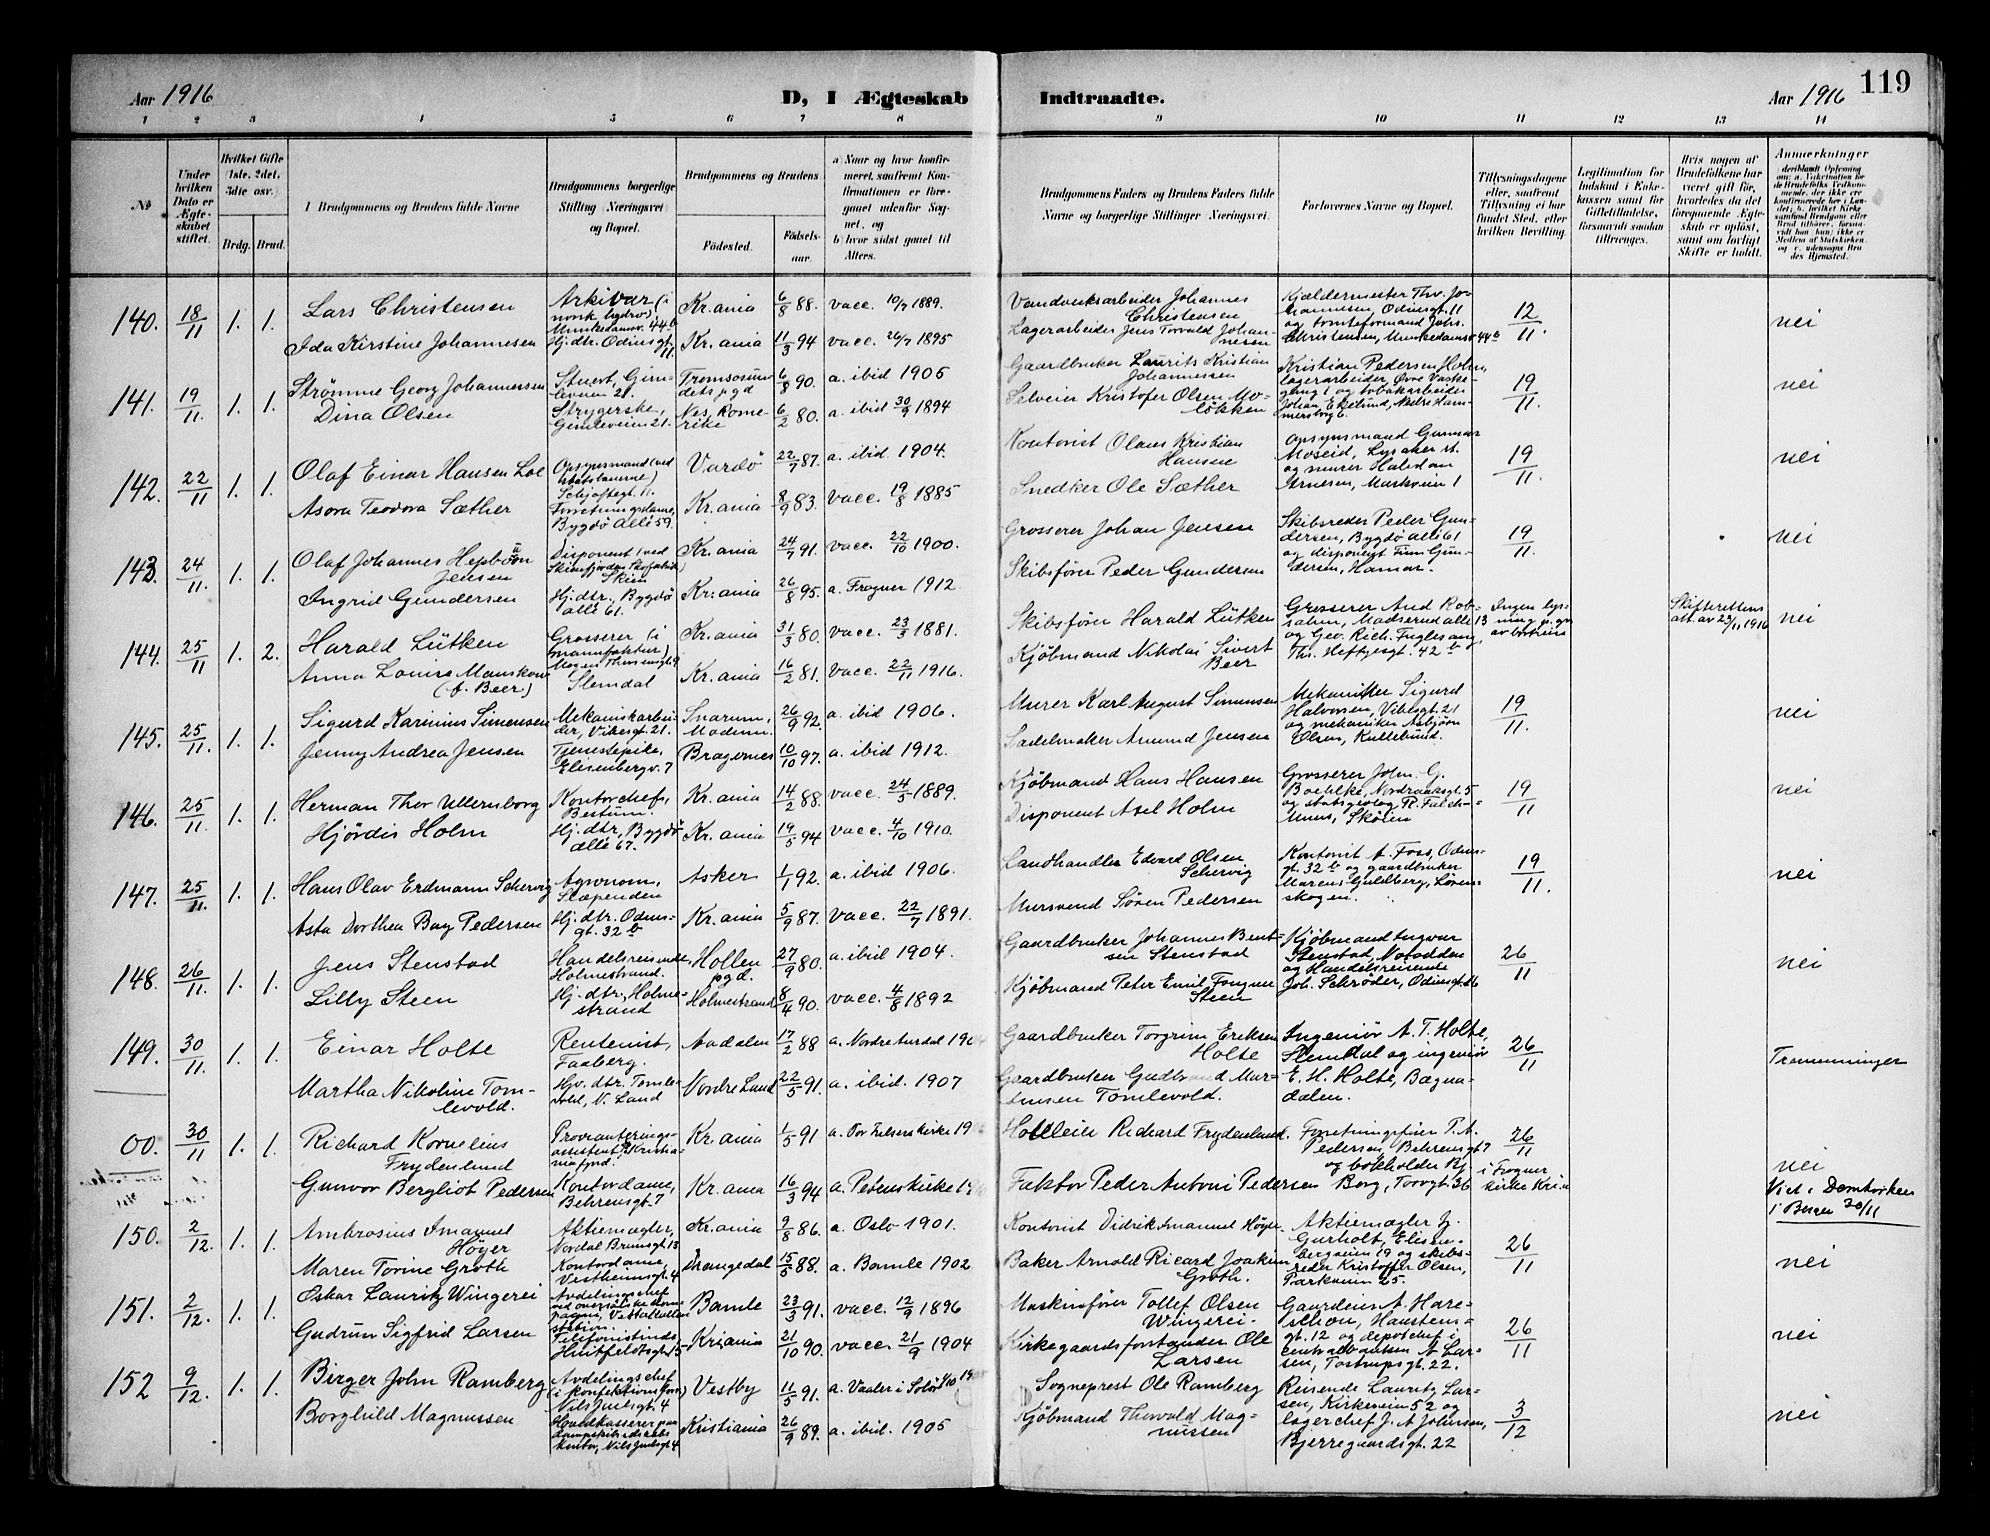 Aar 1916
D, I Ægteskab Indtraadte.
Aar 1916
119
1 2 3 4 5 6 7 8 9 10 11 12 13 14
No
Under hvilken Dato er Ægteskabet stiftet.
Hvilket Gifte (1ste, 2det, 3dte osv.)
Brdg. Brud.
Brudgommens og Brudens fulde Navne
Brudgommens borgerlige Stilling (Næringsvei) og Bopæl.
Brudgommens og Brudens
Fødested. Fødsels-aar.
a) Naar og hvor konfirmeret, samt
b) hvor sidst gaaet til Alters.
Brudgommens Faders og Brudens Faders fulde Navne og borgerlige Stillinger Næringsvei.
Forlovernes Navne og Bopæl.
Tillysningsdagene eller, saafremt Tillysning ei har fundet Sted, efter hvilken Bevilling.
Legitimation for Indskud i Enkekassen samt for Giftetilladelse, forsaavidt saadan tiltrænges.
Hvis nogen af Brudefolkene har været gift før, hvorledes da det foregaaende Ægteskab er opløst, samt om lovligt Skifte er holdt.
Anmærkninger
140. 18/11 1. 1. Lars Christensen
Arkivar (i norsk hydro), Munkedamsv. 44b
Kr.ania 6/8 88. vacc. 10/7 1889.
Vandverksarbeider Johannes Christensen
12/11. nei
Ida Kirstine Johannesen
Hj.dtr. Odinsgt. 11
Kr.ania 11/3 94 vacc. 26/7 1895
Lagerarbeider Jens Torvald Johannesen
141. 19/11. 1. 1. Strømme Georg Johannessen
Stuert, Gimleveien 21.
6/8 90. a. ibid 1905
Gaardbruker Laurits Kristian Johannessen
Kristian Pedersen Holm, lagerarbeider
19/11. nei
Dina Olsen
Strygerske, Gimleveien 21.
Nes, Romerike 6/2 80. a. ibid 30/9 1894
Selveier Kristofer Olsen Moløkken
142. 22/11 1. 1. Olaf Einar Hansen Loe
Opsynsmand (ved statsbanerne) Schjøttsgt. 11.
Vardö 22/7 87. a. ibid 1904.
Kontorist Olaus Kristian Hansen
Opsynsmand Gunnar Moseid, Lysaker st. og murer Halvdan Arnesen, Markveien 1
19/11. nei
Asora Teodora Sæther
Forretningsdame, Bygdø allé 59.
Kr.ania 8/9 83. vacc. 19/8 1885
Snedker Ole Sæther
143. 24/11. 1. 1. Olaf Johannes Jensen
Disponent (ved Skiensfjorden Skofabrik) Skien
Kr.ania 24/7 91. vacc. 22/10 1900.
Grosserer Johan Jensen
Skibsreder Peder Gundersen, Bygdø allé 61 og disponent Finn Gundersen, Hamar.
19/11. nei
Ingrid Gundersen
Hj.dtr., Bygdø allé 61.
Kr.ania 26/8 95. a. Frogner 1912
Skibsfører Peder Gundersen
144. 25/11 1. 2. Harald Lütken
Grosserer (i manufaktur)
Slemdal
Kr.ania 31/3 80. vacc. 23/3 1881.
Skibsfører Harald Lütken
Grosserer And Robsahm, Madserud allé 13 og Geo. Rich. Fuglesang, Th. Heftyesgt. 42b
Skifterettens att. av 23/11 1916 nei
Anna Louise Manskow (f. Beer)
Kr.ania 16/2 81. vacc. 22/11 1916.
Kjøbmand Nikolai Sivert Beer
145. 25/11. 1. 1. Sigurd Karinius Simensen
Mekaniskarbeider, Vibesgt. 21.
Snarum, Modum. 26/9 92. a. ibid 1906.
Murer Karl August Simensen
Mekaniker Sigurd Halvorsen, Vibesgt. 21 og mekaniker Asbjørn Olsen, Kullebund.
19/11. nei
Jenny Andrea Jensen
Tjenestepike, Elisenbergv. 7
Bragernes 10/10 97. a. ibid 1912.
Sadelmaker Amund Jensen
146. 25/11. 1. 1. Herman Thor Ullernborg
Kontorchef, Bestum.
Kr.ania 14/2 88. vacc. 24/5 1889.
Kjøbmand Hans Hansen
Grosserer John. G. Boehlke, Nordraaksgt. 5
19/11 nei
Hjördis Holm
Hj.dtr, Bygdø allé 67.
Kr.ania 19/5 94 vacc. 4/10 1910.
Disponent Axel Holm
147. 25/11. 1. 1. Hans Olav Erdmann Schervig
Agronom, Slæpenden
Asker 1/1 92. a. ibid 1906.
Landhandler Edvard Olsen Schervig
Kontorist A. Foss, Odinsgt. 32b og gaardbruker Marcus Guldberg, Lørenskogen.
19/11. nei
Asta Dorthea Bay Pedersen
Hj.dtr. Odinsgt. 32b
Kr.ania 5/9 87. vacc. 22/7 1891.
Mursvend Søren Pedersen
148. 26/11. 1. 1. Jens Stenstad
Handelsreisende, Holmestrand.
Hollen pgd. 27/9 80. a. ibid 1904.
Gaardbruker Johannes Bentsen Stenstad
Kjøbmand Ingvar Stenstad, Notodden og Handelsreisende Joh. Schrøder, Odinsgt. 16
26/11 nei
Lilly Steen
Hj.dtr, Holmestrand
Holmestrand 8/4 90. vacc. 4/8 1892
Kjøbmand Peter Emil Steen
149. 30/11. 1. 1. Einar Holte
Rentenist, Faaberg.
Aadalen 17/2 88 a. Nordre Aurdal
Gaardbruker Torgrim Eriksen Holte
Ingeniør A. T. Holte, Slemdal og ingeniør E. H. Holte, Bægnadalen.
26/11 Tremenninger
Martha Nikoline Tomlevold.
Hjv. dtr. Tomlevold, N. Land
Nordre Land 22/5 91. a. ibid. 1907
Gaardbruker Gudbrand Tomlevold.
00. 30/11 1. 1. Richard Kornelius Frydenlund
Provianteringsassistent,
Kr.ania 1/5 91
Richard Frydenlund.
Forretningsfører P. A. Pedersen, Behrensgt 7 og bokholder Borg, Torvgt. 36
26/11 i Frogner kirke
nei
Gunvor Bergliot Pedersen
Kontordame, Behrensgt. 7
Kr.ania 16/3 94 a. Petruskirke
Faktor Peder Antoni Pedersen
Viet i Domkirken i Bergen 30/11
150. 2/12. 1. 1. Ambrosius Imanuel Höyer
Aktiemægler, Nordal Brunsgt. 13
Kr.ania 9/8 86. a. Oslo 1901.
Kontorist Didrik Imanuel Höyer
Aktiemægler J. Gurholt, Elisenbergveien 19 og skibsreder Kristoffer Olsen, Parkveien 25.
26/11 nei
Maren Torine Groth
Kontordame, Vestheimsgt. 4
Drangedal 15/5 88. a. Bamle 1902
Baker Arnold Ricard Joakim Groth.
151. 2/12. 1. 1. Oskar Lauritz Wingerei
Avdelingschef
Bamle 23/3 91. vacc. 12/9 1896
Maskinfører Tollef Olsen Wingerei
26/11 nei
Gudrun Sigfrid Larsen
Huitfeldtsgt. 15
Kr.ania 21/10 90. vacc. 21/9 1904
Kirkegaardsforstander Ole Larsen
152 9/12. 1. 1. Birger John Ramberg
Avdelingschef (i konfektionsforr.) Nils Juelsgt. 4
Vestby 11/5 91. a. Vaaler i Solør
Sogneprest Ole Ramberg
Reisende Lauritz Larsen, Kirkeveien 52 og lagerchef J. A Johnsen, Bjerregaardsgt. 22
3/12 nei
Borghild Magnussen
Hovedkasserer paa dampskibsselskabskontor, Nils Juelsgt. 4
Kristiania 26/9 89. a. ibid. 1905
Kjøbmand Thorvald Magnussen